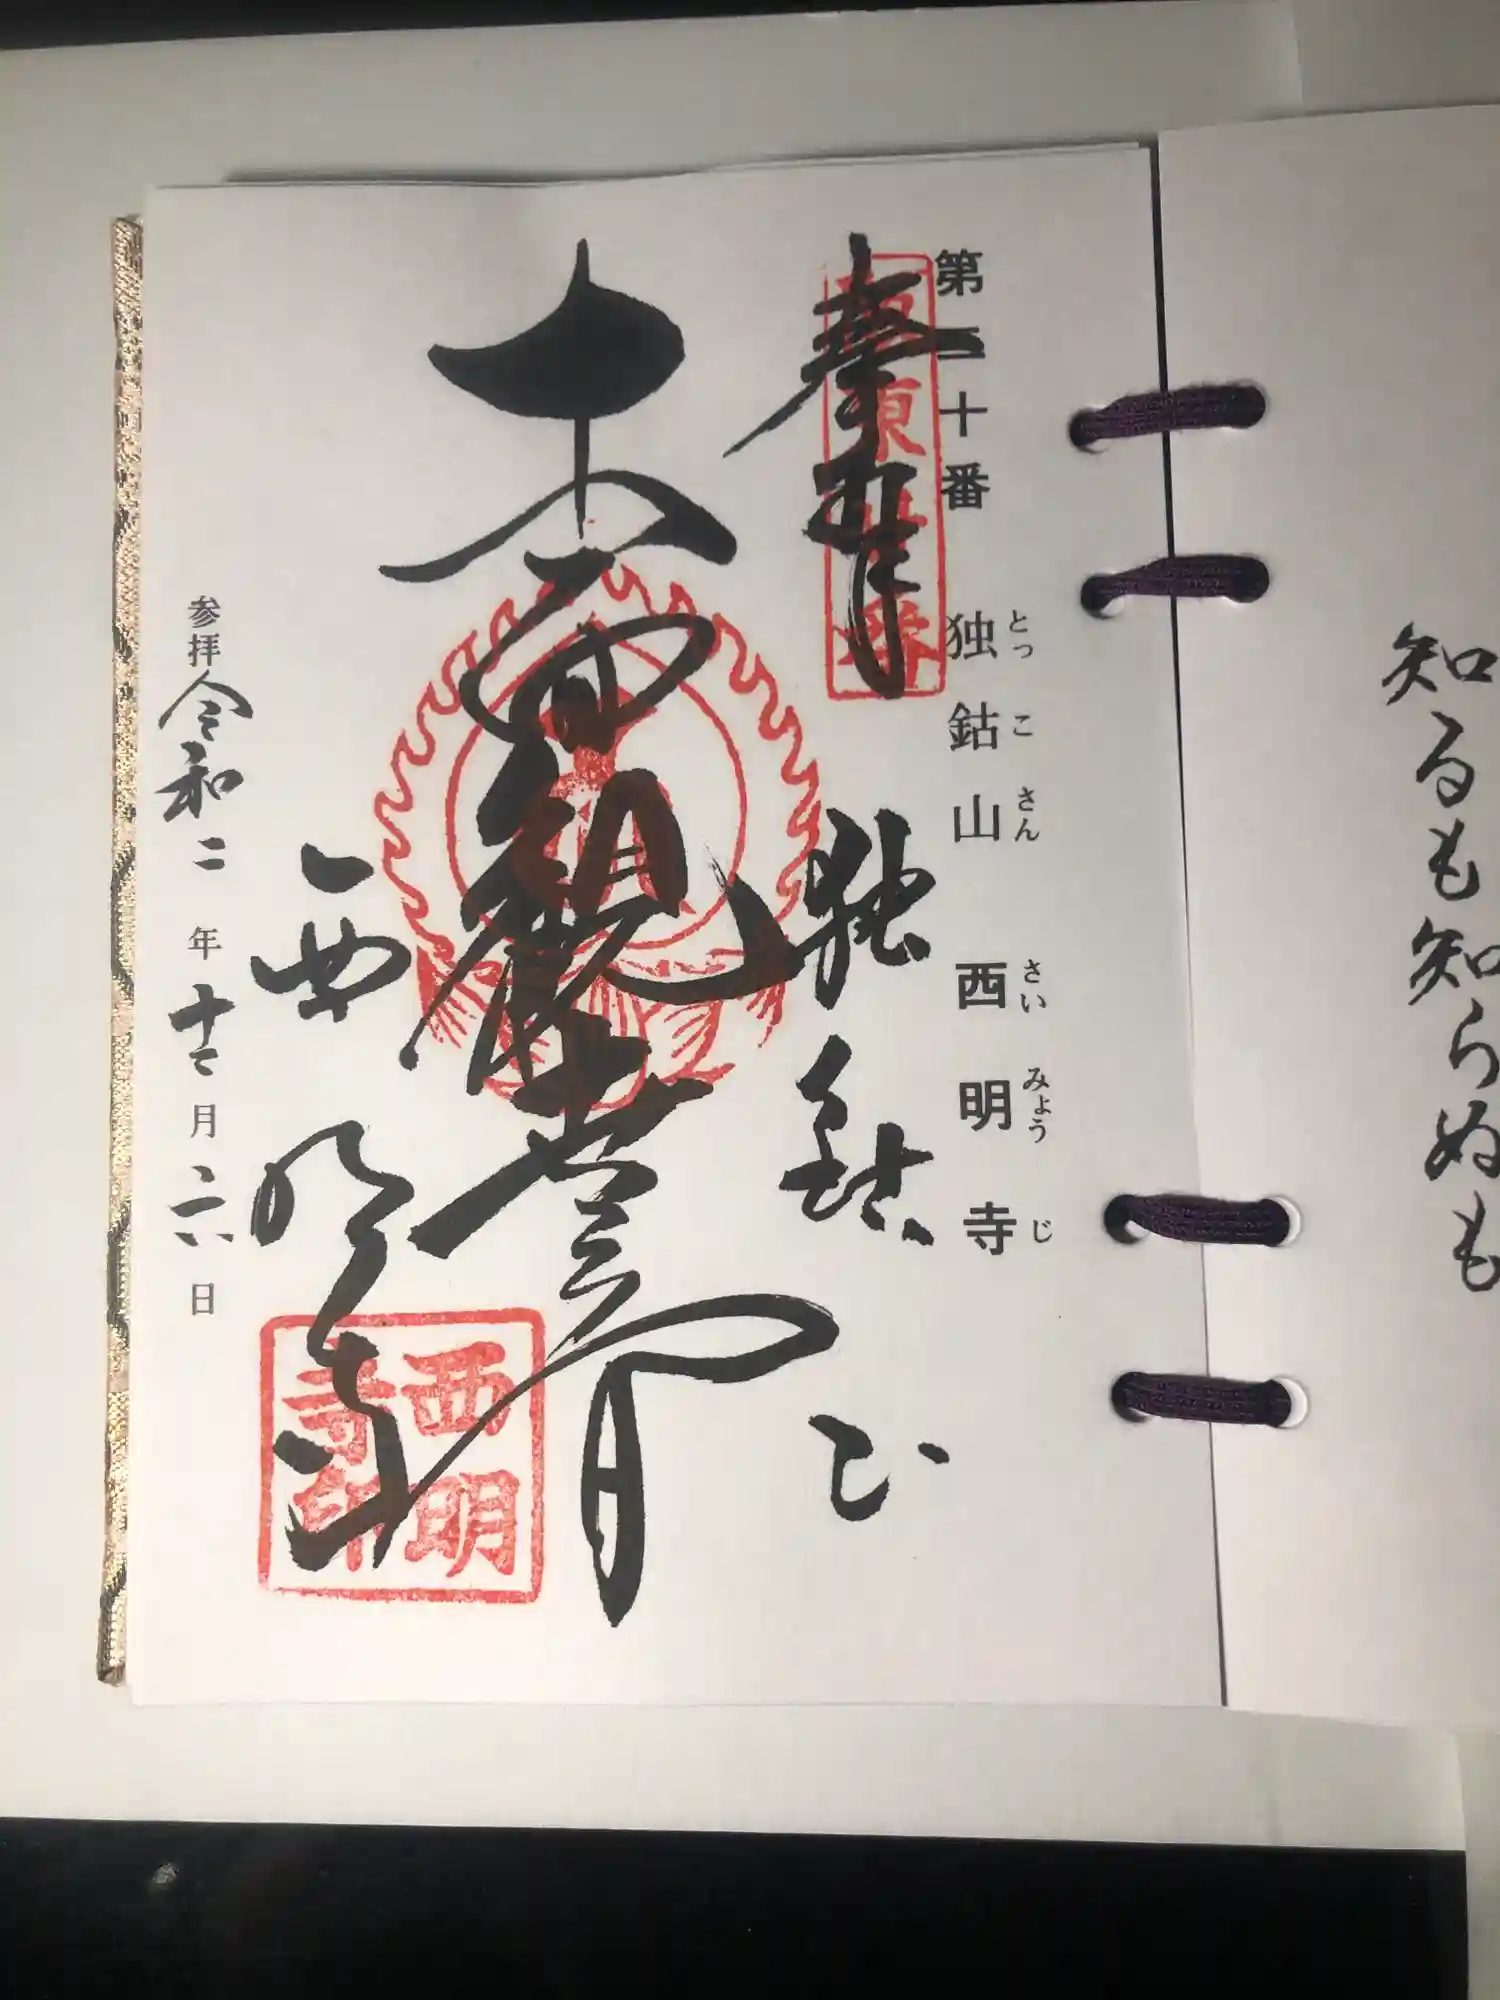 知るも知らぬも
第二十番 独鈷山 西明寺
とっこさん さいみょうじ
奉拝
独鈷山
十一面観世音
西明寺
西明寺印
参拝 令和二年十二月二六日